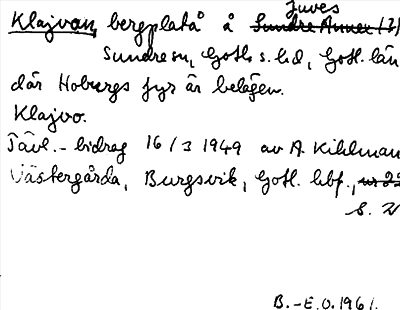 Juves
Klajvan, bergplatå å Sundre Annex (3)
Sundre sn, Gotl. s. hd, Gotl. län
där Hoburgs fyr är belägen.
Klajvo.
Tävl.-bidrag 16/3 1949 av A. Kihlman
Västergårda, Burgsvik, Gotl. hbf.,
s. 21
B.-E.O. 1961.